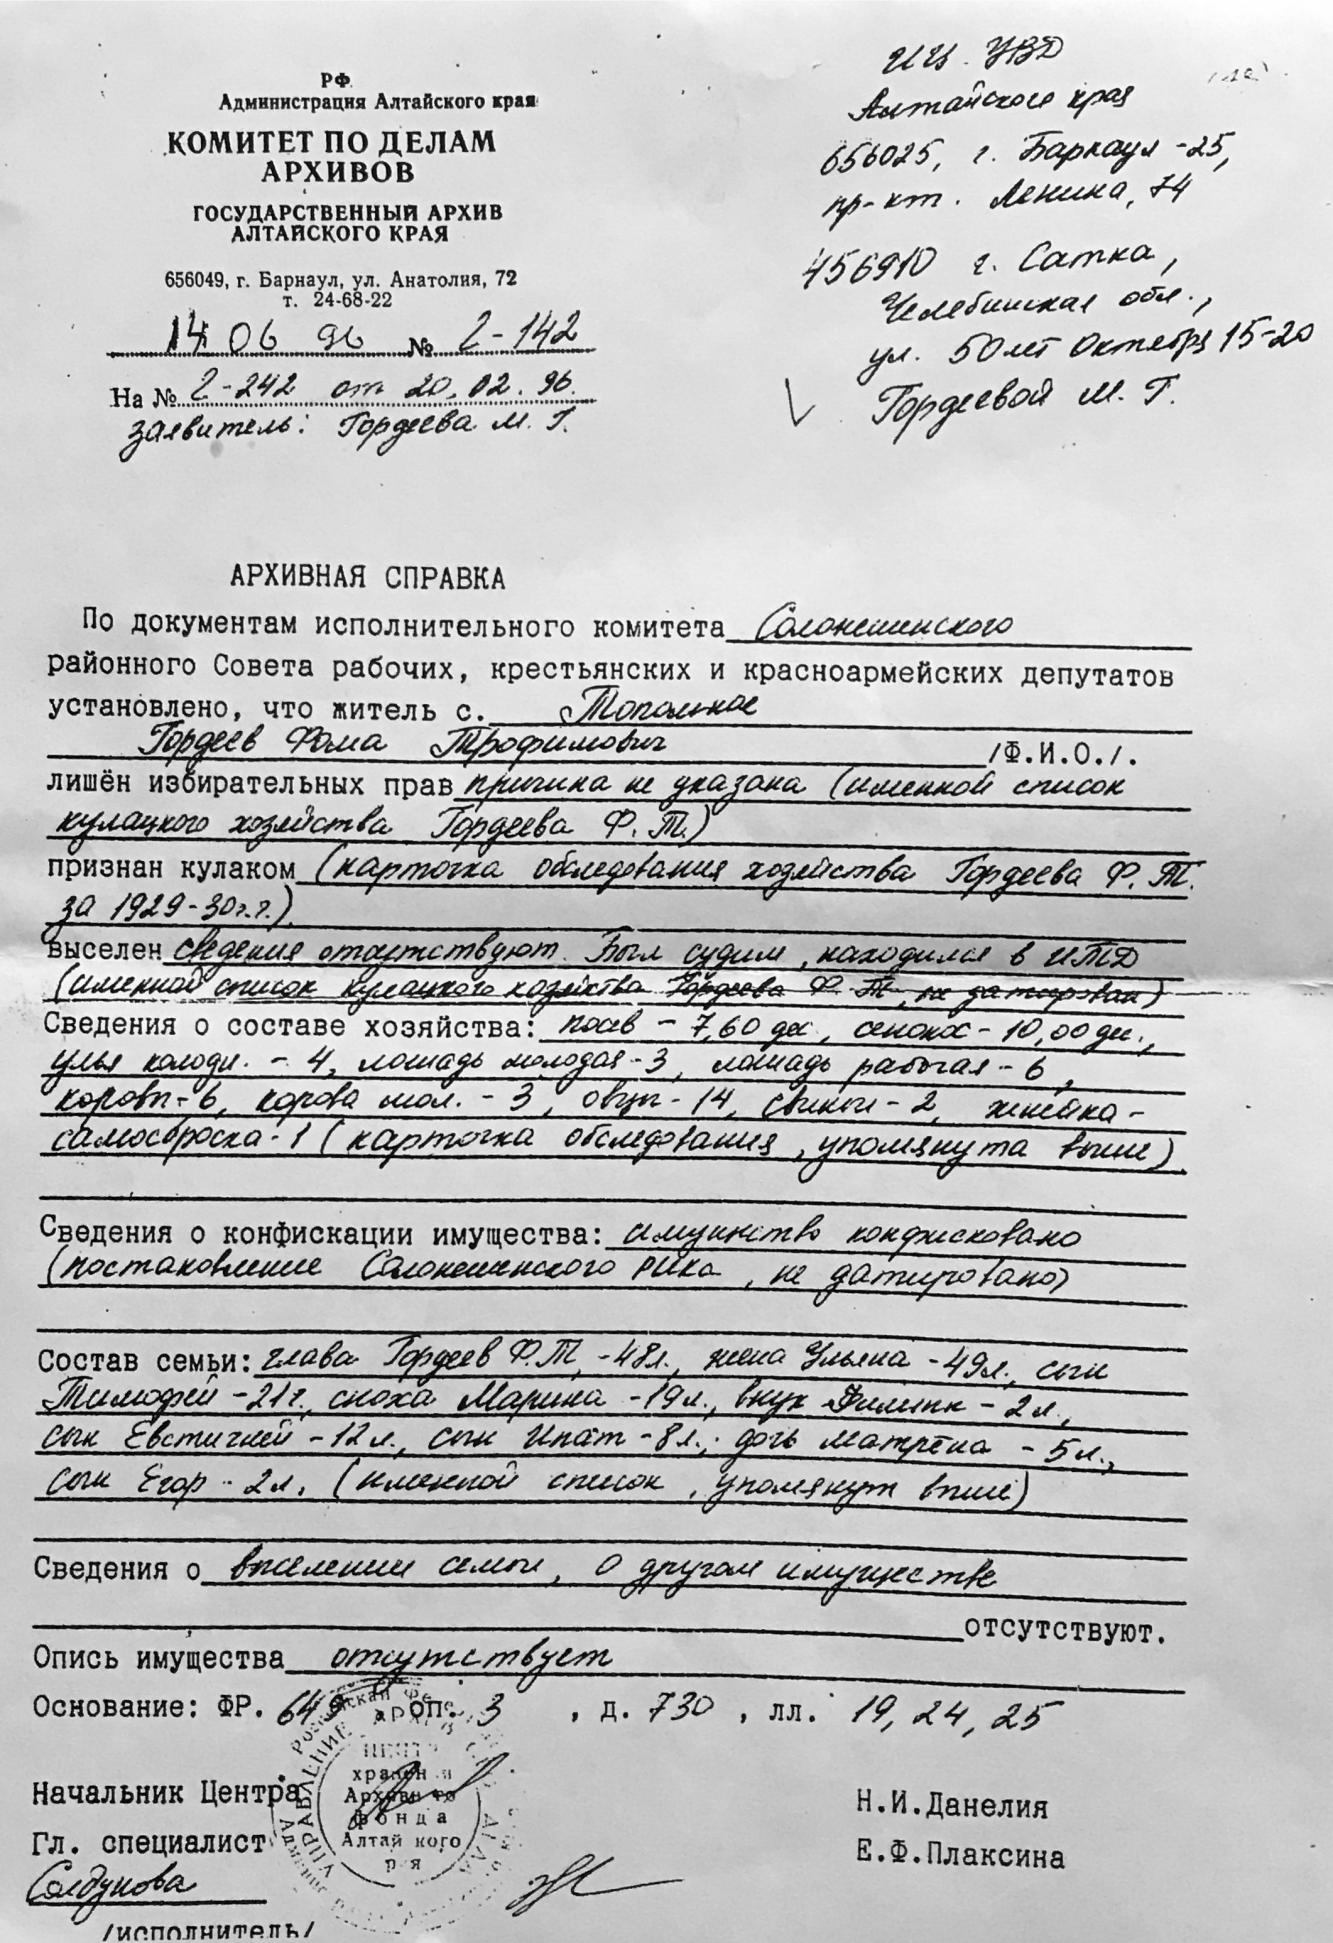 РФ
Администрация Алтайского края
КОМИТЕТ ПО ДЕЛАМ
АРХИВОВ
ГОСУДАРСТВЕННЫЙ АРХИВ
АЛТАЙСКОГО КРАЯ
656049, г. Барнаул, ул. Анатолия, 72
т. 24-68-22
14 06 96 № 2-142
На № 2-242 от 20.02.96.
заявитель: Гордеева М. Г.
ИЦ УВД
Алтайского края
656025, г. Барнаул-25,
пр-кт. Ленина, 74
456910 г. Сатка,
Челябинская обл.,
ул. 50 лет Октября 15-20
Гордеевой М. Г.
АРХИВНАЯ СПРАВКА
По документам исполнительного комитета Солонешенского
районного Совета рабочих, крестьянских и красноармейских депутатов
установлено, что житель с. Топольное
Гордеев Фома Трофимович /Ф.И.О./.
лишён избирательных прав причина не указана (именной список
кулацкого хозяйства Гордеева Ф. Т.)
признан кулаком (карточка обследования хозяйства Гордеева Ф. Т.
за 1929-30г.г.)
выселен сведения отсутствуют. Был судим, находился в ИТД
(именной список кулацкого хозяйства Гордеева Ф. Т., не датирован)
Сведения о составе хозяйства: посев - 7,60 дес, сенокос - 10,00 дес.,
улья колодн. - 4, лошадь молодая - 3, лошадь рабочая - 6,
коровы - 6, корова мол. - 3, овцы - 14, свиньи - 2, жнейка-
самосброска - 1 (карточка обследования, упомянута выше)
Сведения о конфискации имущества: имущество конфисковано
(постановление Солонешенского РИКа, не датировано)
Состав семьи: глава Гордеев Ф.Т. - 48л., жена Ульяна - 49л., сын
Тимофей - 21г., сноха Марина - 19л., внук Филипп - 2л.,
сын Евстигней - 12л., сын Ипат - 8л., дочь Матрёна - 5л.,
сын Егор - 2л. (именной список, упомянут выше)
Сведения о выселении семьи, о другом имуществе
отсутствуют.
Опись имущества отсутствует
Основание: ФР. 649, оп. 3, д. 730, лл. 19, 24, 25
Начальник Центра Н.И.Данелия
Гл. специалист Е.Ф.Плаксина
Солдунова
/исполнитель/
УПРАВЛЕНИЕ
хранения
Архивного
фонда
Алтайского